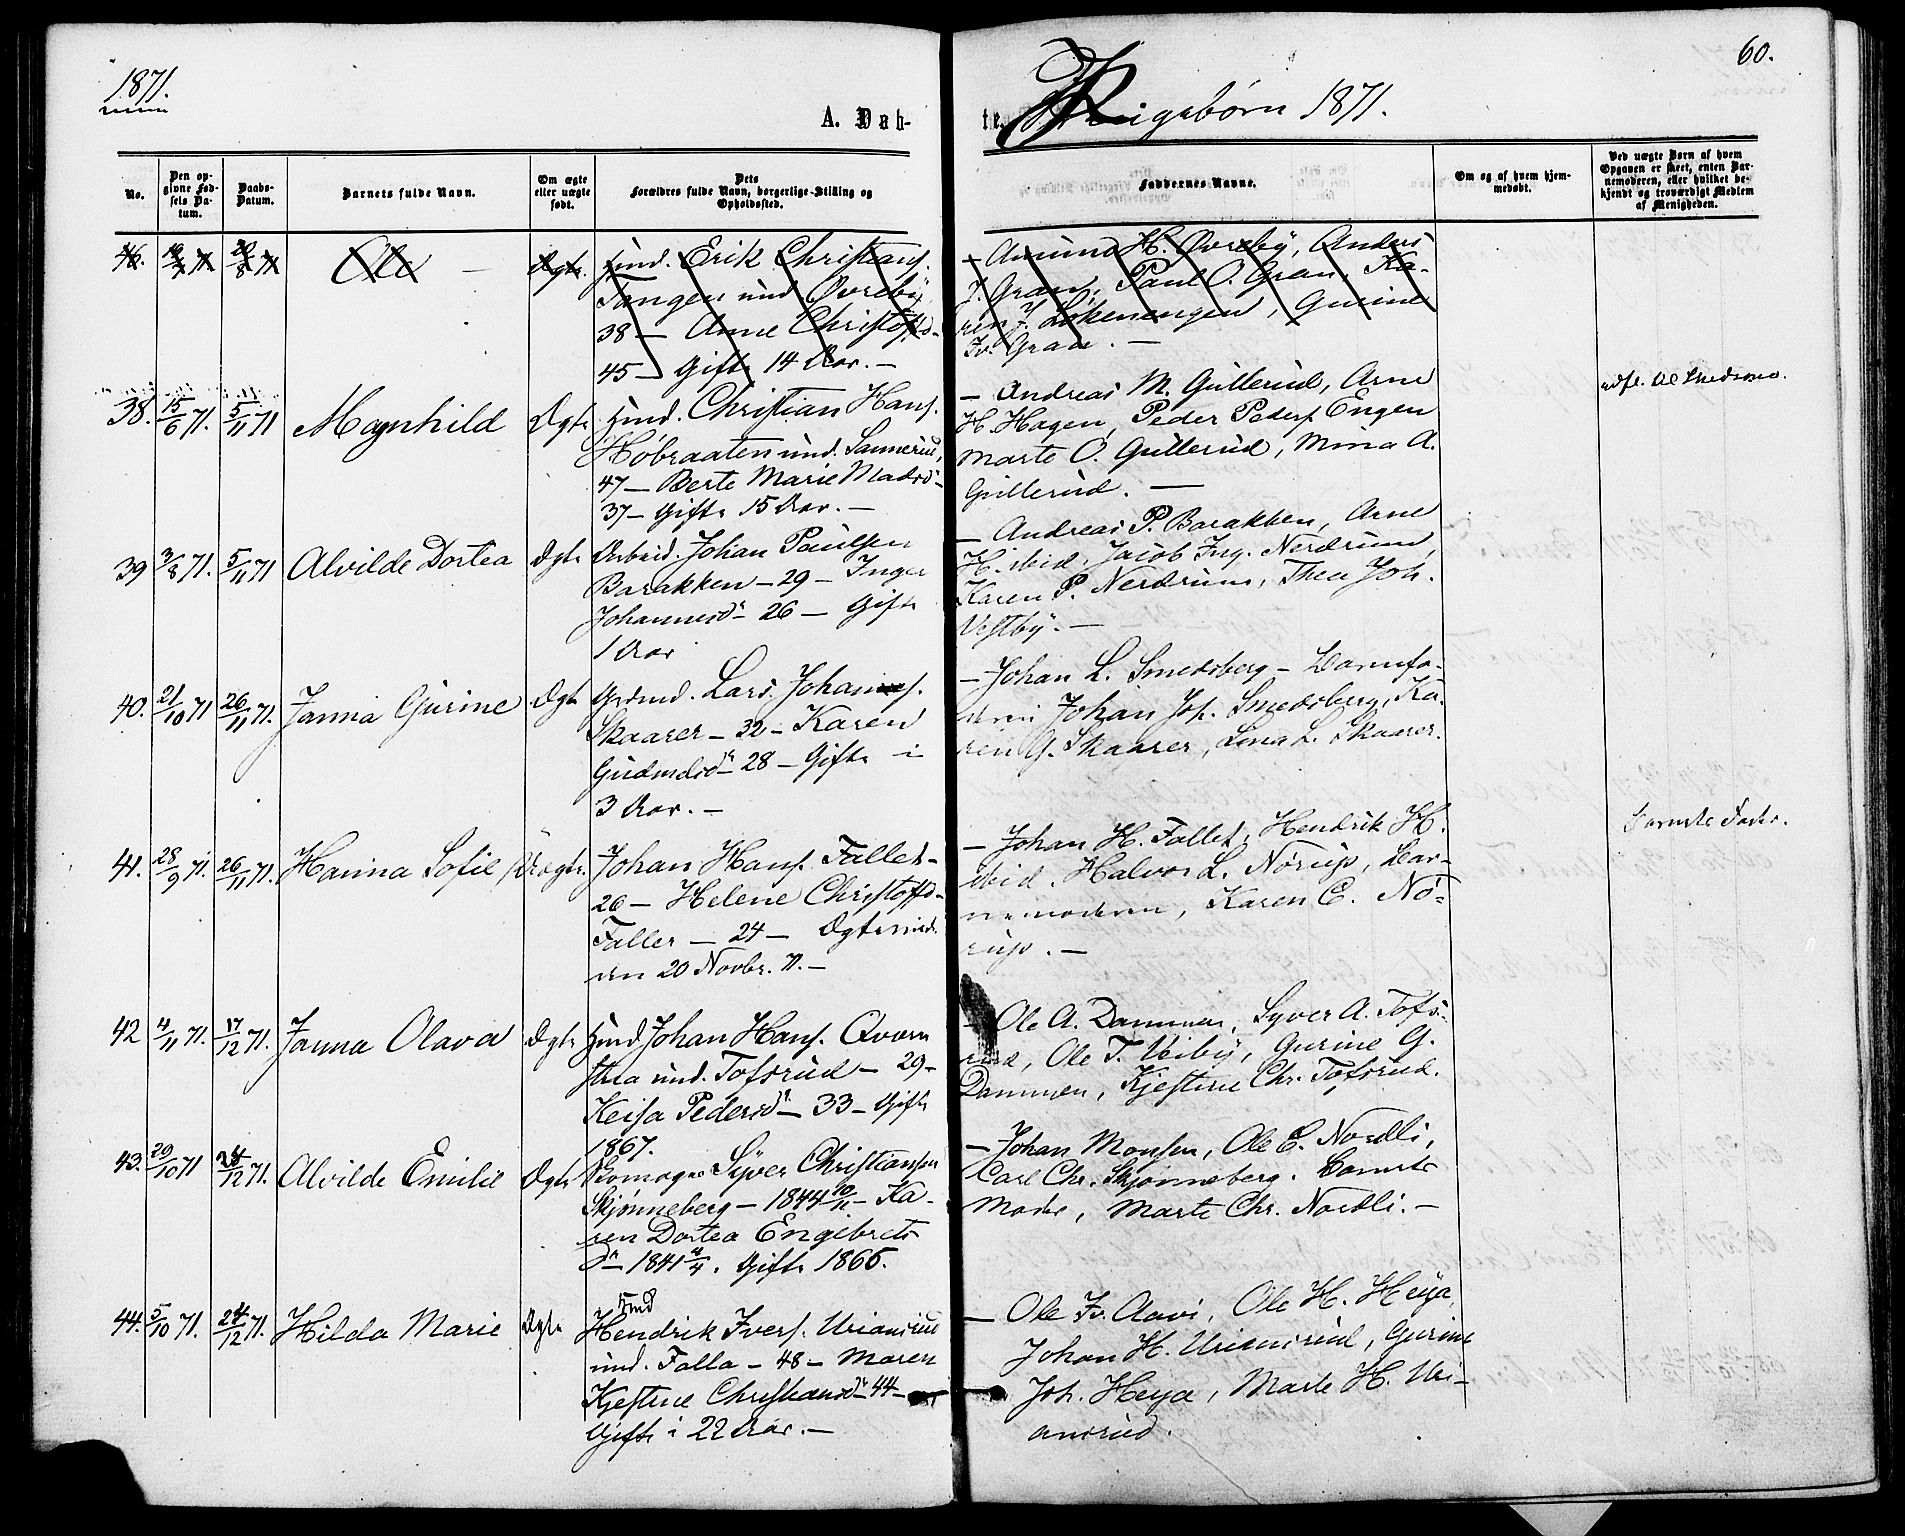 1871.
60.
A. Døb-
te. Pigebørn 1871.
No.
Den op-
givne Fød-
sels Da-
tum.
Daabs-
Datum.
Barnets fulde Navn.
Om ægte
eller uægte
født.
Dets
Forældres fulde Navn, borgerlige Stilling og
Opholdssted.
Faddernes Navne.
Om og af hvem hjem-
medøbt.
Ved uægte Børn af hvem
Opgaven er skeet, enten Bar-
nemoderen, eller hvilket be-
kjendt og troværdigt Medlem
af Menigheden.
46.
Ole
Ægte.
Hmd. Erik Christians.
Tangen und Øvreby
38 — Anne Christoffd-
45 — Gifte 14 Aar. —
— Amund H. Øvreby, Anders
J. Gran, Paul O. Gran, Ka-
ren J. Løkenengen, Gurine
Iv. Gran. —
38. 15/6 71. 5/11 71 Magnhild Ægte
Hmd. Christian Hans.
Høbraaten und. Sannerud,
47 — Berte Marie Madsd-
37 — Gifte 15 Aar. —
— Andreas M. Gullerud, Arne
H. Hagen, Peder Peders. Engen
Marte O. Gullerud, Mina A.
Gullerud. —
39 3/8 71. 5/11 71 Alvilde Dortea Ægte
Arbeid. Johan Paulsen
Barakken — 29 — Inger
Johannesd — 26 — Gifte
1 Aar
— Andreas P. Barakken, Arne
H. ibid, Jacob Ing. Nerdrum,
Karen P. Nerdrum, Thea Joh.
Vestby. —
40. 21/10 71 26/11 71. Janna Gurine Ægte
Grdmd. Lars Johans.
Skaarer — 32 — Karen
Gudmdsd — 28 — Gifte i
3 Aar. —
— Johan L. Smedsberg — Barnefa-
deren Johan Joh. Smedsberg, Ka-
ren G. Skaarer, Lina L. Skaarer.
41. 28/9 71. 26/11 71. Hanna Sofie Uægte.
Johan Hans. Fallet —
26 — Helene Christoffd-
Faller — 24 — Ægteviede
den 20 Novbr. 71. —
— Johan H. Fallet, Hendrik H.
ibid. Halvor L. Nørup, Bar-
nemoderen, Karen E. Nø-
rup. —
Barnets Fader.
42 4/11 71. 17/12 71. Janna Olava Ægte
Hmd Johan Hans. Qværn
und. Tofsrud — 29 —
Pedersd — 33 — Gifte
1867.
— Ole A. Dammen, Syver A. Tofs-
rud, Ole T. Veiby, Gurine G.
Dammen, Kjestine Chr. Tofsrud.
43. 29/10 71 24/12 71. Alvilde Emilie Ægte
Skomager Syver Christiansen
Skjønneberg — 1844 — Ka-
ren Dortea Engebrets
d — 1841. Gifte 1866.
— Johan Monsen, Ole C. Nordli,
Carl Chr. Skjønneberg. Barnets
Moder, Marte Chr. Nordli. —
44. 5/10 71. 24/12 71. Hilda Marie Ægte
Hmd
Hendrik Ivers. Urianrud
und. Falla — 48 — Maren
Kjestine Christiansd — 44 —
Gifte i 22 Aar. —
— Ole Iv. Aavi, Ole H. Heya,
Johan H. Urianrud, Gurine
Joh. Heya, Marte H. Uri-
anrud.